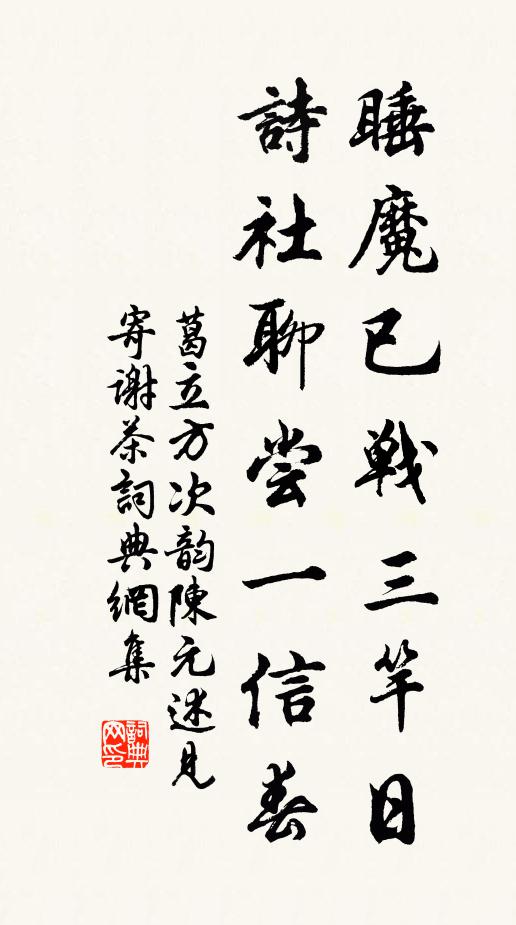 睡魔已戦三竿日
詩社聊尝一信春
葛立方次韵陳元述見
寄谢茶詞典網集
詞典
网印